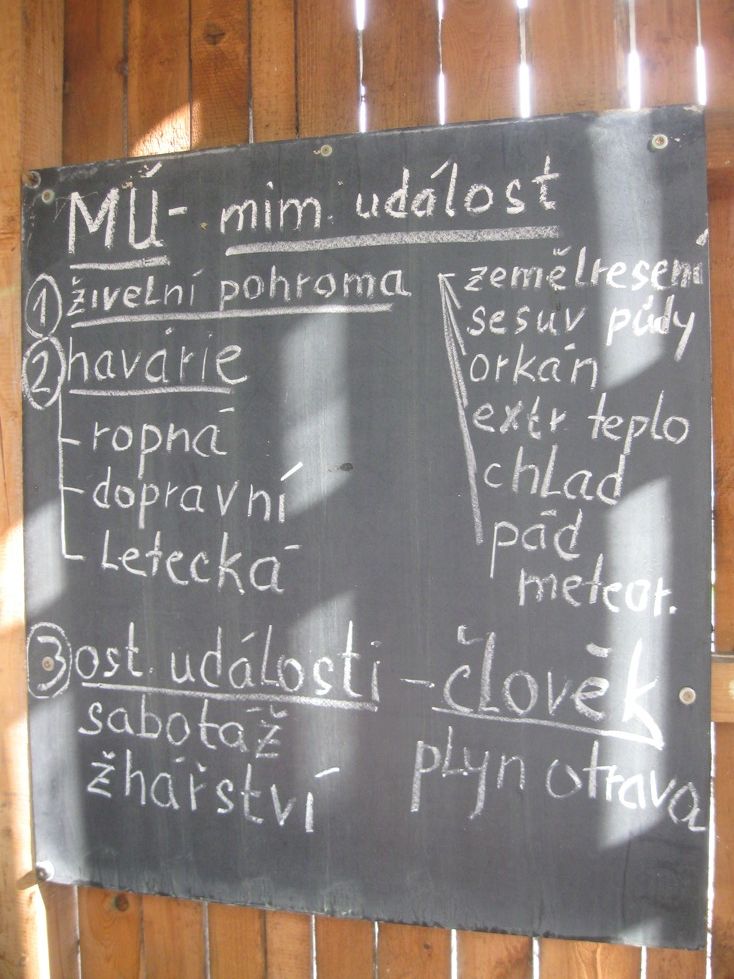 MÚ - mim. událost
① živelní pohroma
② havárie
- ropná
- dopravní
- letecká
zemětresení
sesuv půdy
orkán
extr teplo
chlad
pád
meteor.
③ ost. události - člověk
sabotáž
žhářství
plyn otrava